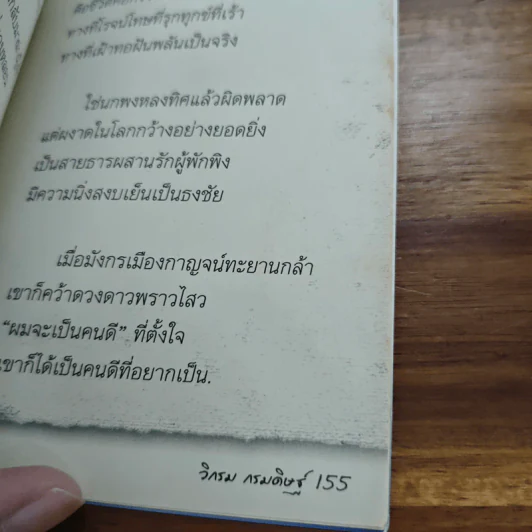 ทางที่โรจน์โทษที่รุกทุกข์ที่เร้า
ทางที่เฝ้าทอฝันพลันเป็นจริง
ใช่นกพงหลงทิศแล้วผิดพลาด
แต่ผงาดในโลกกว้างอย่างยอดยิ่ง
เป็นสายธารผสานรักผู้พักพิง
มีความนิ่งสงบเย็นเป็นธงชัย
เมื่อมังกรเมืองกาญจน์ทะยานกล้า
เขาก็คว้าดวงดาวพราวไสว
“ผมจะเป็นคนดี” ที่ตั้งใจ
เขาก็ได้เป็นคนดีที่อยากเป็น.
วิกรม กรมดิษฐ์ 155